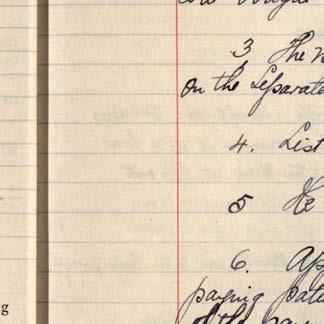 3 The
on the Separate
4. List
5 He
6. Ap
paying
of the
g